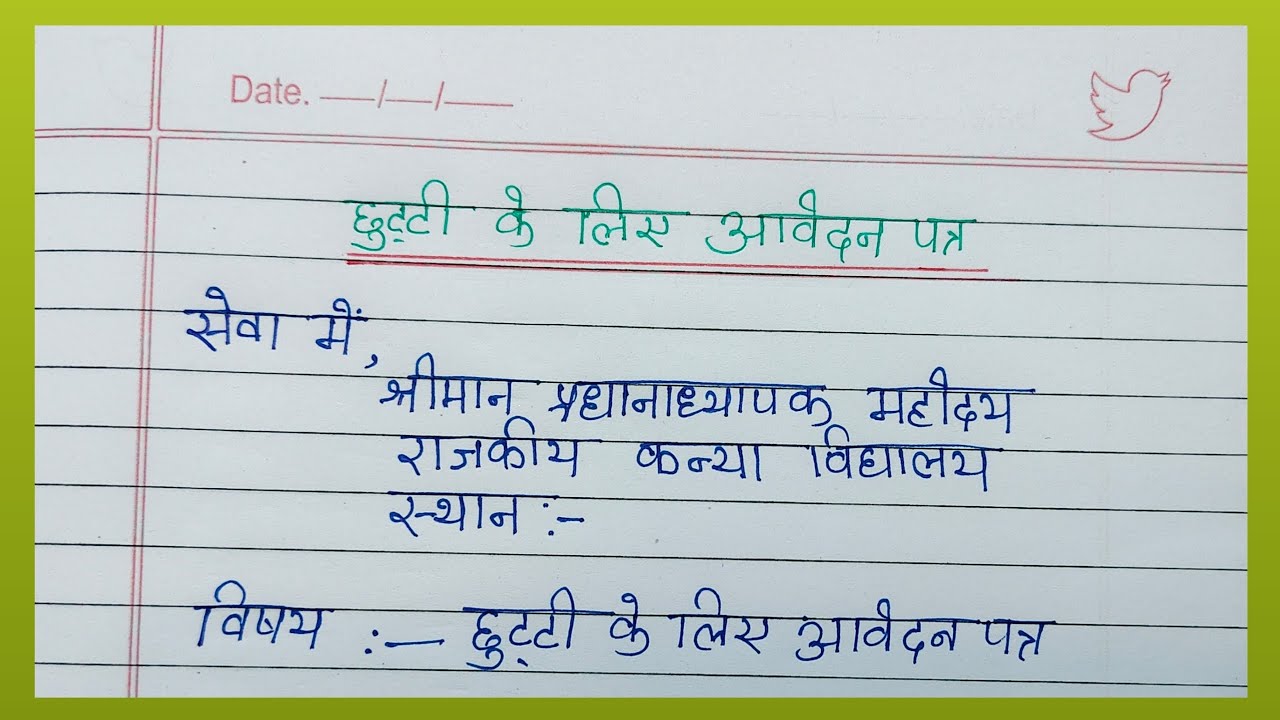 Date. __/__/__
छुट्टी के लिए आवेदन पत्र
सेवा में,
श्रीमान प्रधानाध्यापक महोदय
राजकीय कन्या विद्यालय
स्थान :-
विषय :- छुट्टी के लिए आवेदन पत्र